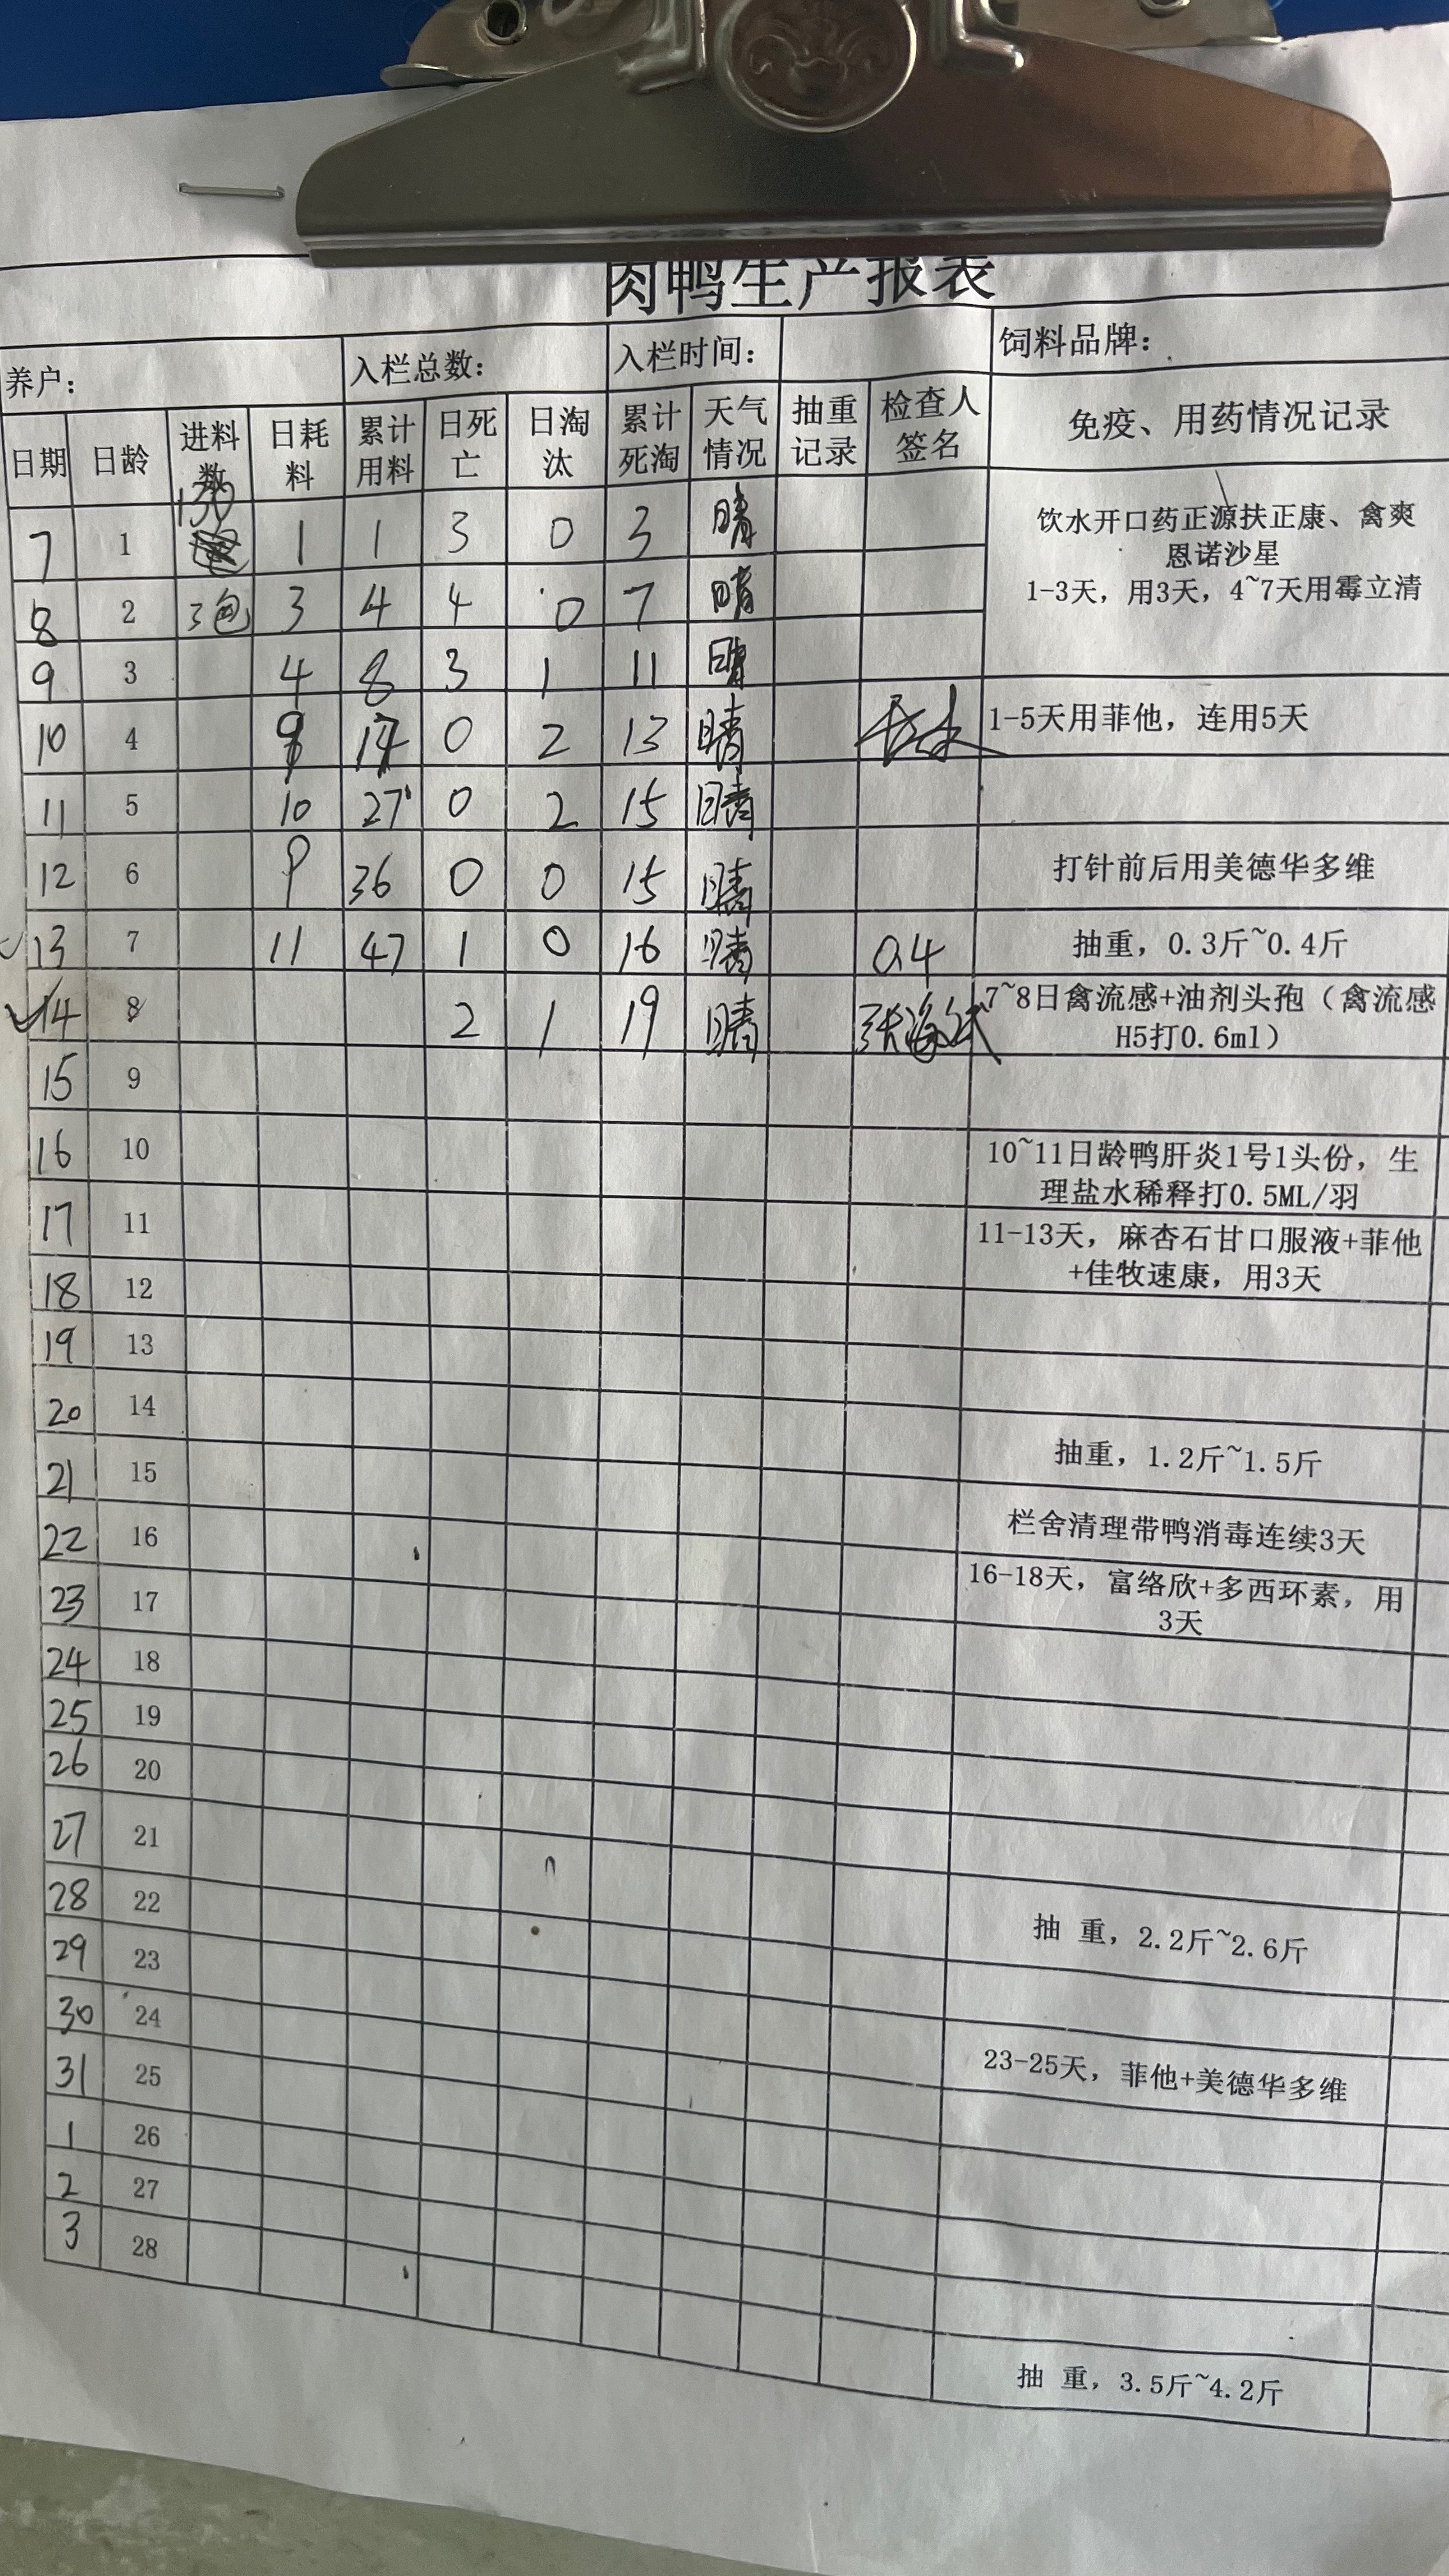 肉鸭生产报表
养户： 入栏总数： 入栏时间： 饲料品牌：
日期 日龄 进料数 日耗料 累计用料 日死亡 日淘汰 累计死淘 天气情况 抽重记录 检查人签名 免疫、用药情况记录
7 1 130 1 1 3 0 3 晴
饮水开口药正源扶正康、禽爽
恩诺沙星
1-3天，用3天，4~7天用霉立清
8 2 3包 3 4 4 0 7 晴
9 3 4 8 3 1 11 晴
10 4 9 17 0 2 13 晴 1-5天用菲他，连用5天
11 5 10 27 0 2 15 晴
12 6 9 36 0 0 15 晴 打针前后用美德华多维
13 7 11 47 1 0 16 晴 0.4 抽重，0.3斤~0.4斤
14 8 2 1 19 晴 7~8日禽流感+油剂头孢（禽流感
H5打0.6ml）
15 9
16 10 10~11日龄鸭肝炎1号1头份，生
理盐水稀释打0.5ML/羽
17 11 11-13天，麻杏石甘口服液+菲他
+佳牧速康，用3天
18 12
19 13
20 14
抽重，1.2斤~1.5斤
21 15
栏舍清理带鸭消毒连续3天
22 16
16-18天，富络欣+多西环素，用
3天
23 17
24 18
25 19
26 20
27 21
28 22
抽 重，2.2斤~2.6斤
29 23
30 24
23-25天，菲他+美德华多维
31 25
1 26
2 27
3 28
抽 重，3.5斤~4.2斤